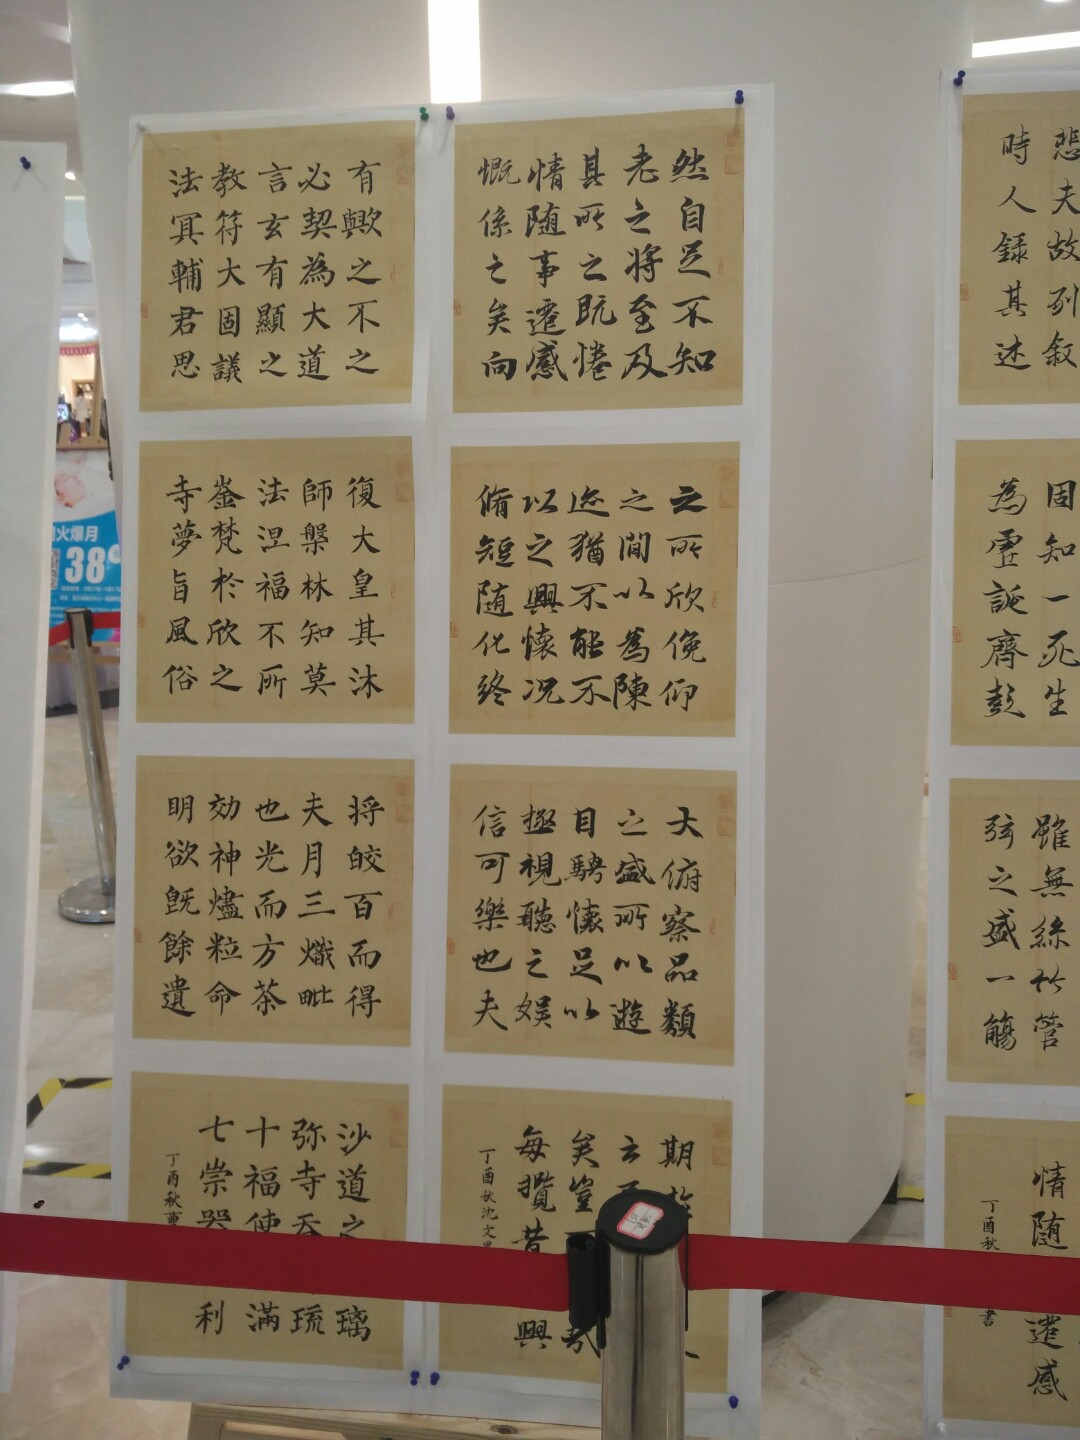 有歟之不之
必契為大道
言玄有顯之
教符大固議
法冥輔君思
復大皇其沐
師槃林知莫
法涅福不所
崟梵於欣之
寺夢旨風俗
将皎百而得
夫月三熾毗
也光而方茶
効神燼粒命
明欲既餘遺
沙道之璃
弥寺吞琉
十福使滿
七崇器利
丁酉秋
然自足不知
老之将至及
其所之既惓
情随事遷感
慨係之矣向
之所欣俛仰
之間以為陳
迹猶不能不
以之興懷况
脩短随化终
大俯察品類
之盛所以遊
目騁懷足以
極視聽之娱
信可樂也夫
期
云
矣豈
每攬昔興
丁酉秋沈文
悲夫故列叙
時人録其述
固知一死生
為虛誕齊彭
雖無絲竹管
弦之盛一觴
情随遷感
丁酉秋書
火爆月
38